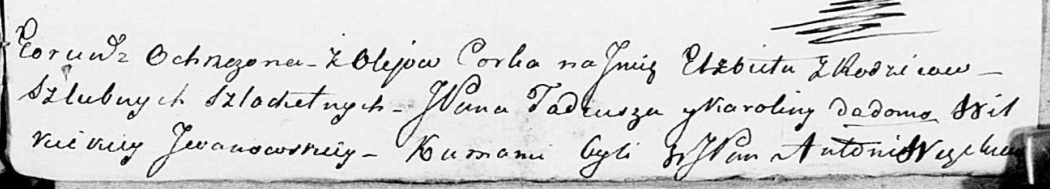 Ochrzczona - z Olejów Corka na Jmię Elzbieta z Rodzicow -
Szlubnych Szlachetnych - JPana Tadeusza y Karoliny da domo Wit
kiewiey Jwanowskiey - Kumami byli JPan Antoni